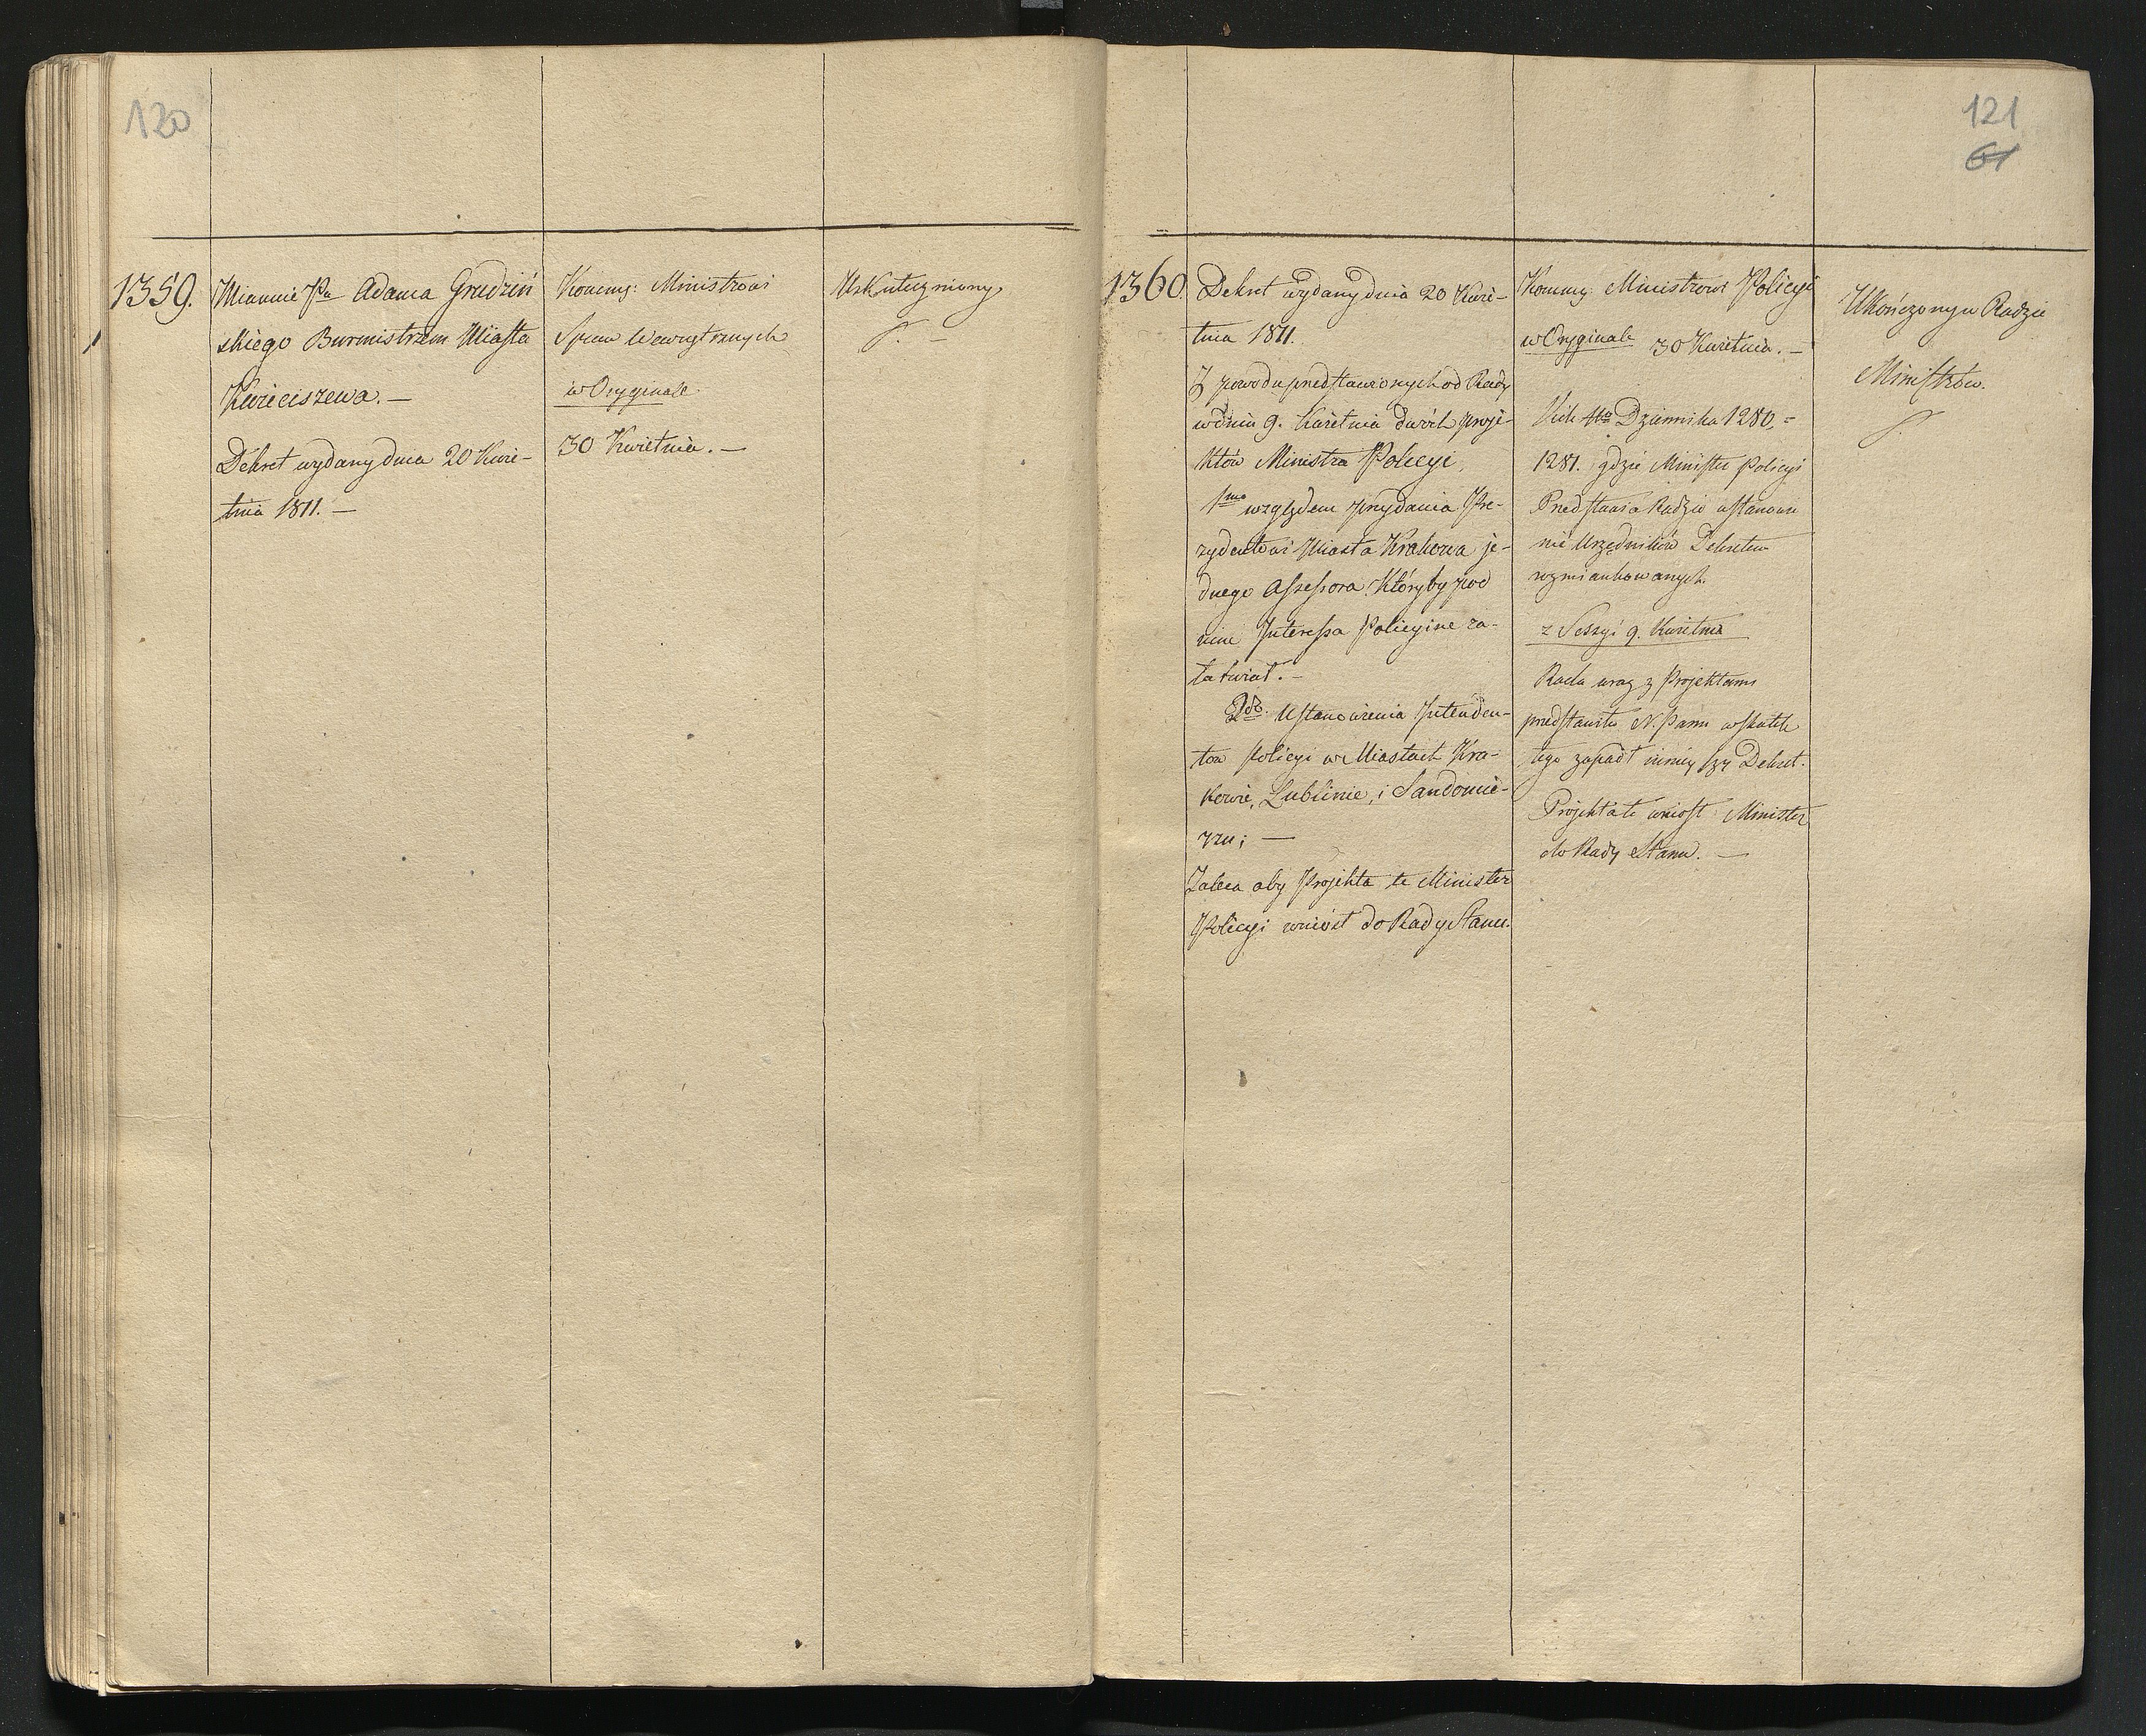 120
1359.
Mianuie Pa Adama Grudziń
skiego Burmistrzem Miasta
Kwieciszewa. —
Dekret wydany dnia 20 Kwie-
tnia 1811. —
Kommg: Ministrowi
Spraw Wewnętrznych
w Oryginale
30 Kwietnia. —
Uskuteczniony
121
61
1360.
Dekret wydany dnia 20 Kwie-
tnia 1811.
Z powodu przedstawionych od Rady
w dniu 9. Kwietnia dwóch proje-
któw Ministra Policyi,
1mo względem przydania Pre-
zydentowi Miasta Krakowa je-
dnego Assessora, któryby pod
nim Interessa Policyine za-
łatwiał. —
2do. Ustanowienia Intenden-
tów Policyi w Miastach Kra-
kowie, Lublinie, i Sandomie-
rzu; —
Zaleca aby Projekta te Minister
Policyi wniósł do Rady Stanu.
Kommg Ministrowi Policyi
w Oryginale 30 Kwietnia. —
Vide Nro Dziennika 1280, =
1281. gdzie Minister Policyi
Przedstawia Radzie ustanowie
nie Urzędników Dekretem
wzmiankowanych.
z Sessyi 9. Kwietnia
Rada wraz z Projektami
przedstawiła N. Panu w skutek
tego zapadł ninieyszy Dekret.
Projekta te wniosł Minister
do Rady Stanu. —
Ukończony w Radzie
Ministrów.